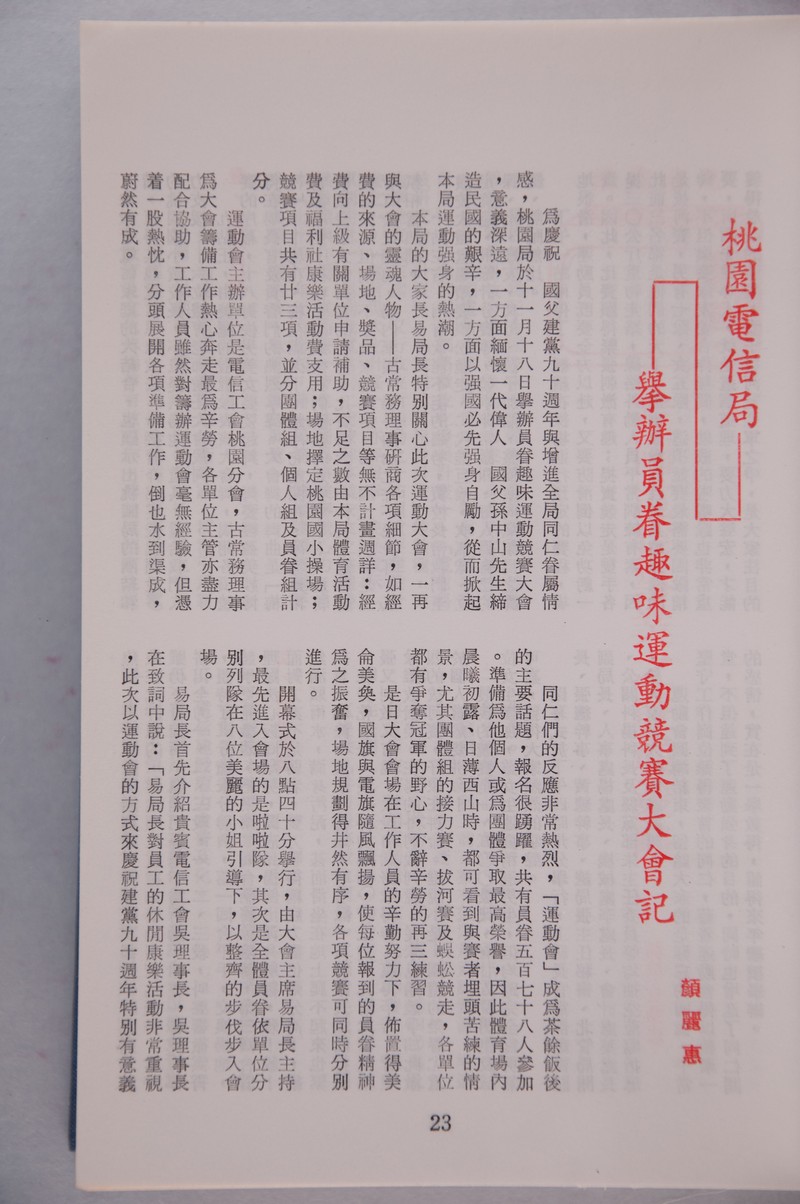 桃園電信局
舉辦員眷趣味運動競賽大會記
顏麗惠
為慶祝　國父建黨九十週年與增進全局同仁眷屬情
感，桃園局於十一月十八日舉辦員眷趣味運動競賽大會
，意義深遠，一方面緬懷一代偉人　國父孫中山先生締
造民國的艱辛，一方面以强國必先强身自勵，從而掀起
本局運動强身的熱潮。
本局的大家長易局長特別關心此次運動大會，一再
與大會的靈魂人物——古常務理事研商各項細節，如經
費的來源、場地、獎品、競賽項目等無不計畫週詳：經
費向上級有關單位申請補助，不足之數由本局體育活動
費及福利社康樂活動費支用；場地擇定桃園國小操場；
競賽項目共有廿三項，並分團體組、個人組及員眷組計
分。
運動會主辦單位是電信工會桃園分會，古常務理事
為大會籌備工作熱心奔走最為辛勞，各單位主管亦盡力
配合協助，工作人員雖然對籌辦運動會毫無經驗，但憑
着一股熱忱，分頭展開各項準備工作，倒也水到渠成，
蔚然有成。
同仁們的反應非常熱烈，「運動會」成為茶餘飯後
的主要話題，報名很踴躍，共有員眷五百七十八人參加
。準備為他個人或為團體爭取最高榮譽，因此體育場內
晨曦初露、日薄西山時，都可看到與賽者埋頭苦練的情
景，尤其團體組的接力賽、拔河賽及蜈蚣競走，各單位
都有爭奪冠軍的野心，不辭辛勞的再三練習。
是日大會會場在工作人員的辛勤努力下，佈置得美
侖美奐，國旗與電旗隨風飄揚，使每位報到的員眷精神
為之振奮，場地規劃得井然有序，各項競賽可同時分別
進行。
開幕式於八點四十分舉行，由大會主席易局長主持
，最先進入會場的是啦啦隊，其次是全體員眷依單位分
別列隊在八位美麗的小姐引導下，以整齊的步伐步入會
場。
易局長首先介紹貴賓電信工會吳理事長，吳理事長
在致詞中說：「易局長對員工的休閒康樂活動非常重視
，此次以運動會的方式來慶祝建黨九十週年特別有意義
23